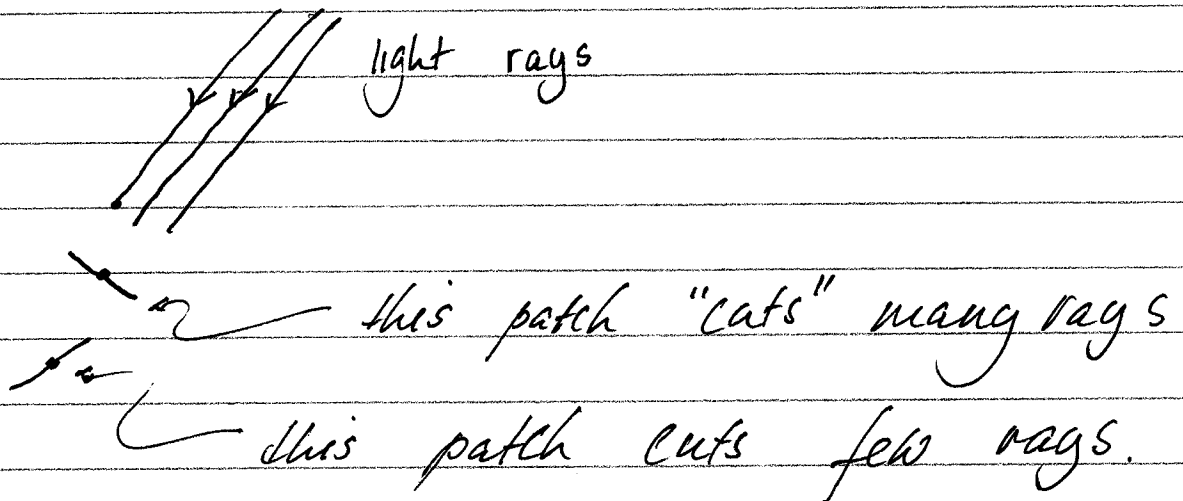 light rays
this patch "cuts" many rays
this patch cuts few rays.